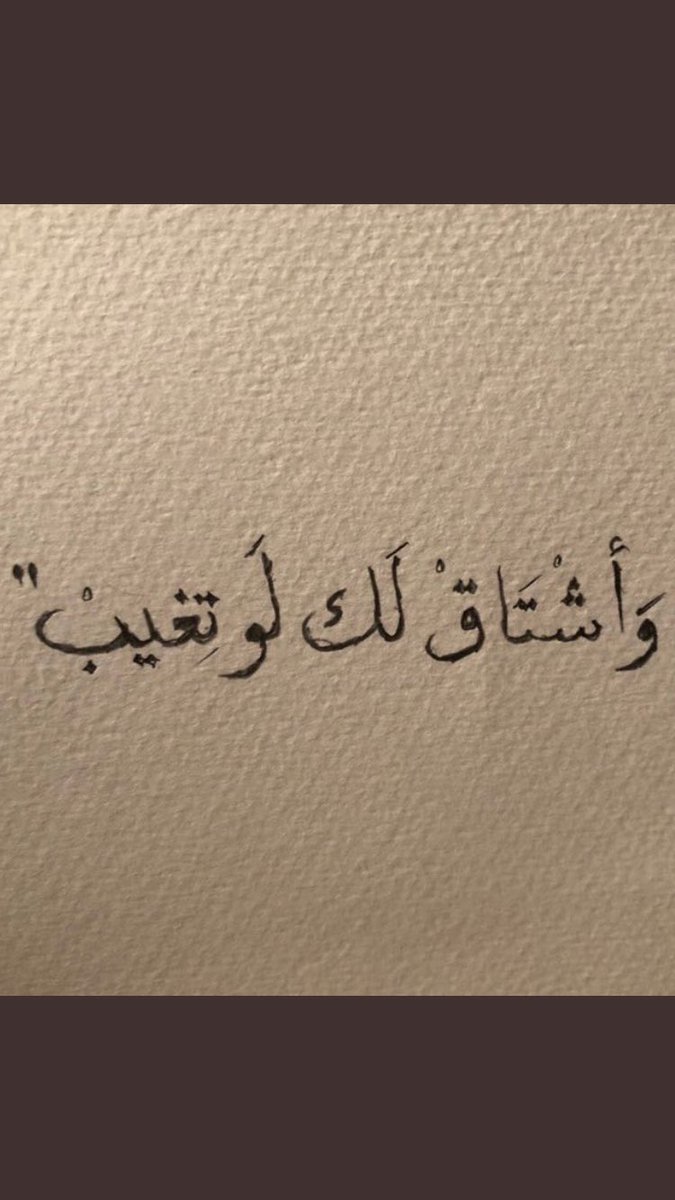 وَأشْتَاقْ لَك لَو تِغيبْ"